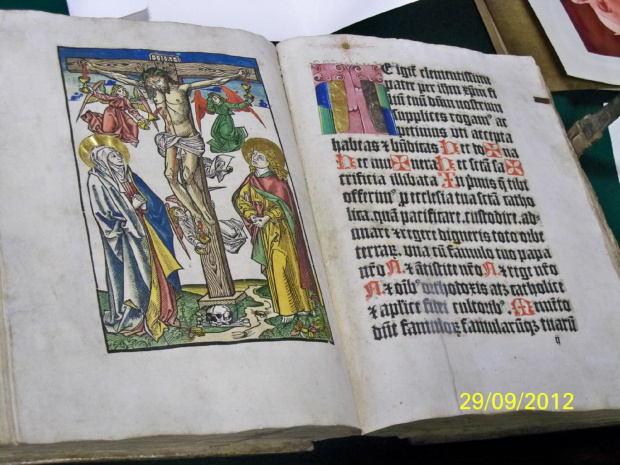 Te igit᷑ clementissime
pater per ihm xpm fi
liū tuū dūm nostrum
supplices rogam⁹ ac
petimus vti accepta
habeas ⁊ bn̄dicas Hec do✠na
Hec mu✠nera Hec sctā sa✠
crificia illibata In pmis q̄ tibi
offerim⁹ p ecclesia tua sctā catho
lica. quā pacificare. custodire. ad
unare ⁊ regere digneris toto orbe
terraꝝ. vna cū famulo tuo papa
nr̄o N. ⁊ antistite nr̄o N. ⁊ rege nr̄o
N. ⁊ oīb⁹ orthodoxis atqꝫ catholice
⁊ aplice fidei cultorib⁹. Memēto
dn̄e famuloꝝ famularūqꝫ tuarū
29/09/2012